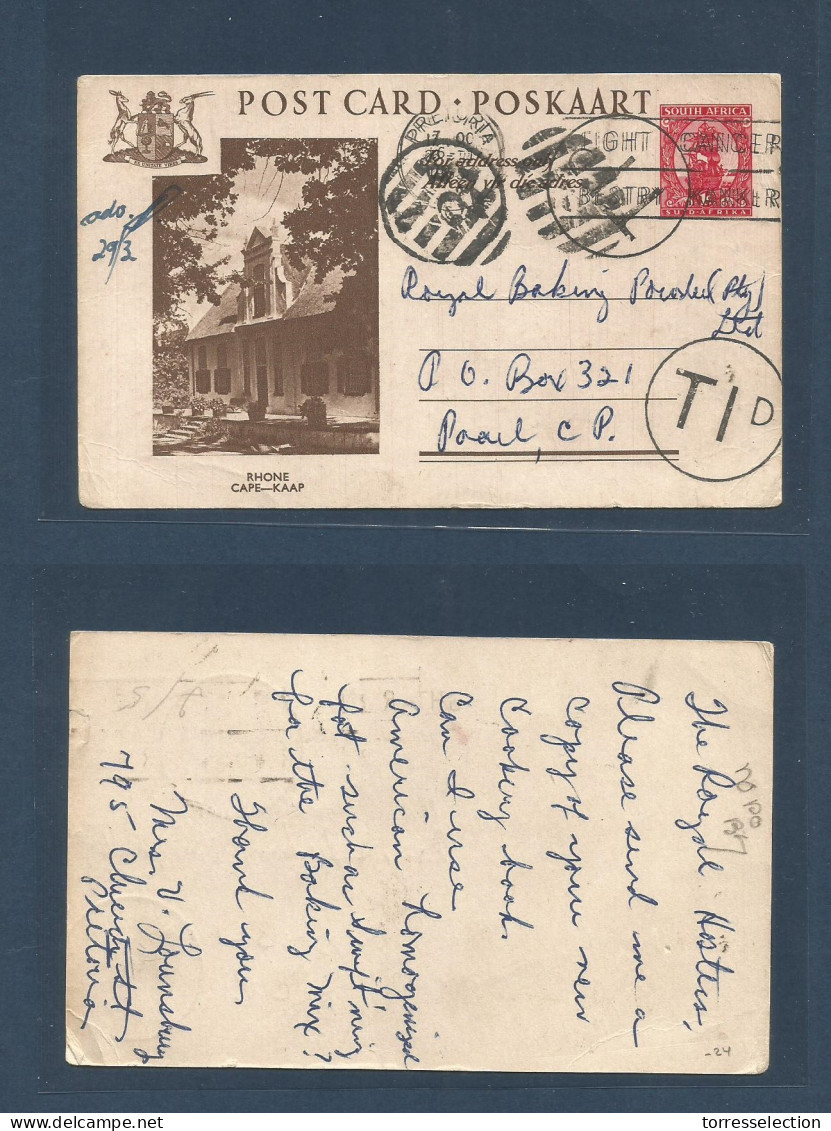 POST CARD · POSKAART
SOUTH AFRICA
SUID-AFRIKA
EX UNITATE VIRES
PRETORIA
17 OC
For address only
Alleen vir die adres
FIGHT CANCER
BESTRY KANKER
ado.
29/3
Royal Baking Powder (Pty)
Ltd
P O. Box 321
Paarl, C P.
T 1 D
RHONE
CAPE—KAAP
The Royal Hostess,
Please send me a
copy of your new
cooking book.
Can I use
American homogenized
fat such as Swift'ning
for the Baking mix?
Thank you
Mrs. V. Lounsbury
795 Church St
Pretoria
-24
torresselection